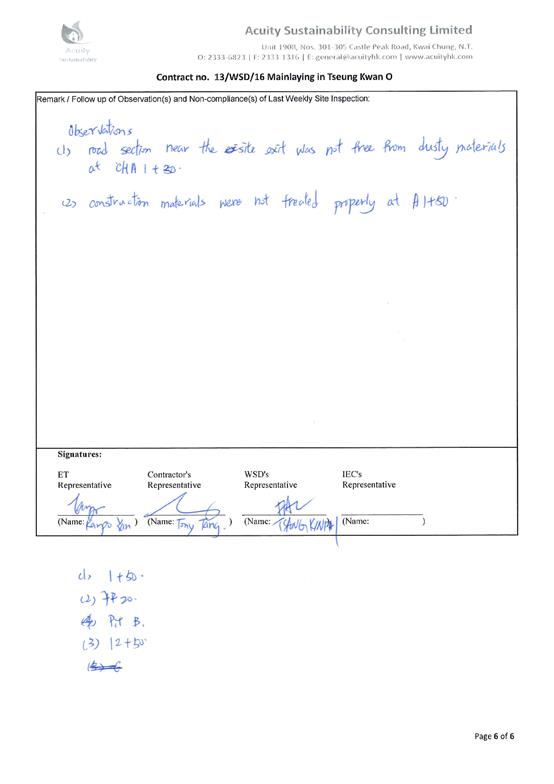 Acuity Sustainability Consulting Limited
Acuity
Sustainability
Unit 1908, Nos. 301-305 Castle Peak Road, Kwai Chung, N.T.
O: 2333-6823 | F: 2333-1316 | E: general@acuityhk.com | www.acuityhk.com
Contract no. 13/WSD/16 Mainlaying in Tseung Kwan O
Remark / Follow up of Observation(s) and Non-compliance(s) of Last Weekly Site Inspection:
Observations
(1) road section near the site exit was not free from dusty materials
at CHA 1+30.
(2) construction materials were not treated properly at A 1+50.
Signatures:
ET Contractor's WSD's IEC's
Representative Representative Representative Representative
(Name: ) (Name: Tony Tang. ) (Name: TSANG (Name: )
(1) 1+50.
(2) 20.
Pit B.
(3) 12+50
Page 6 of 6